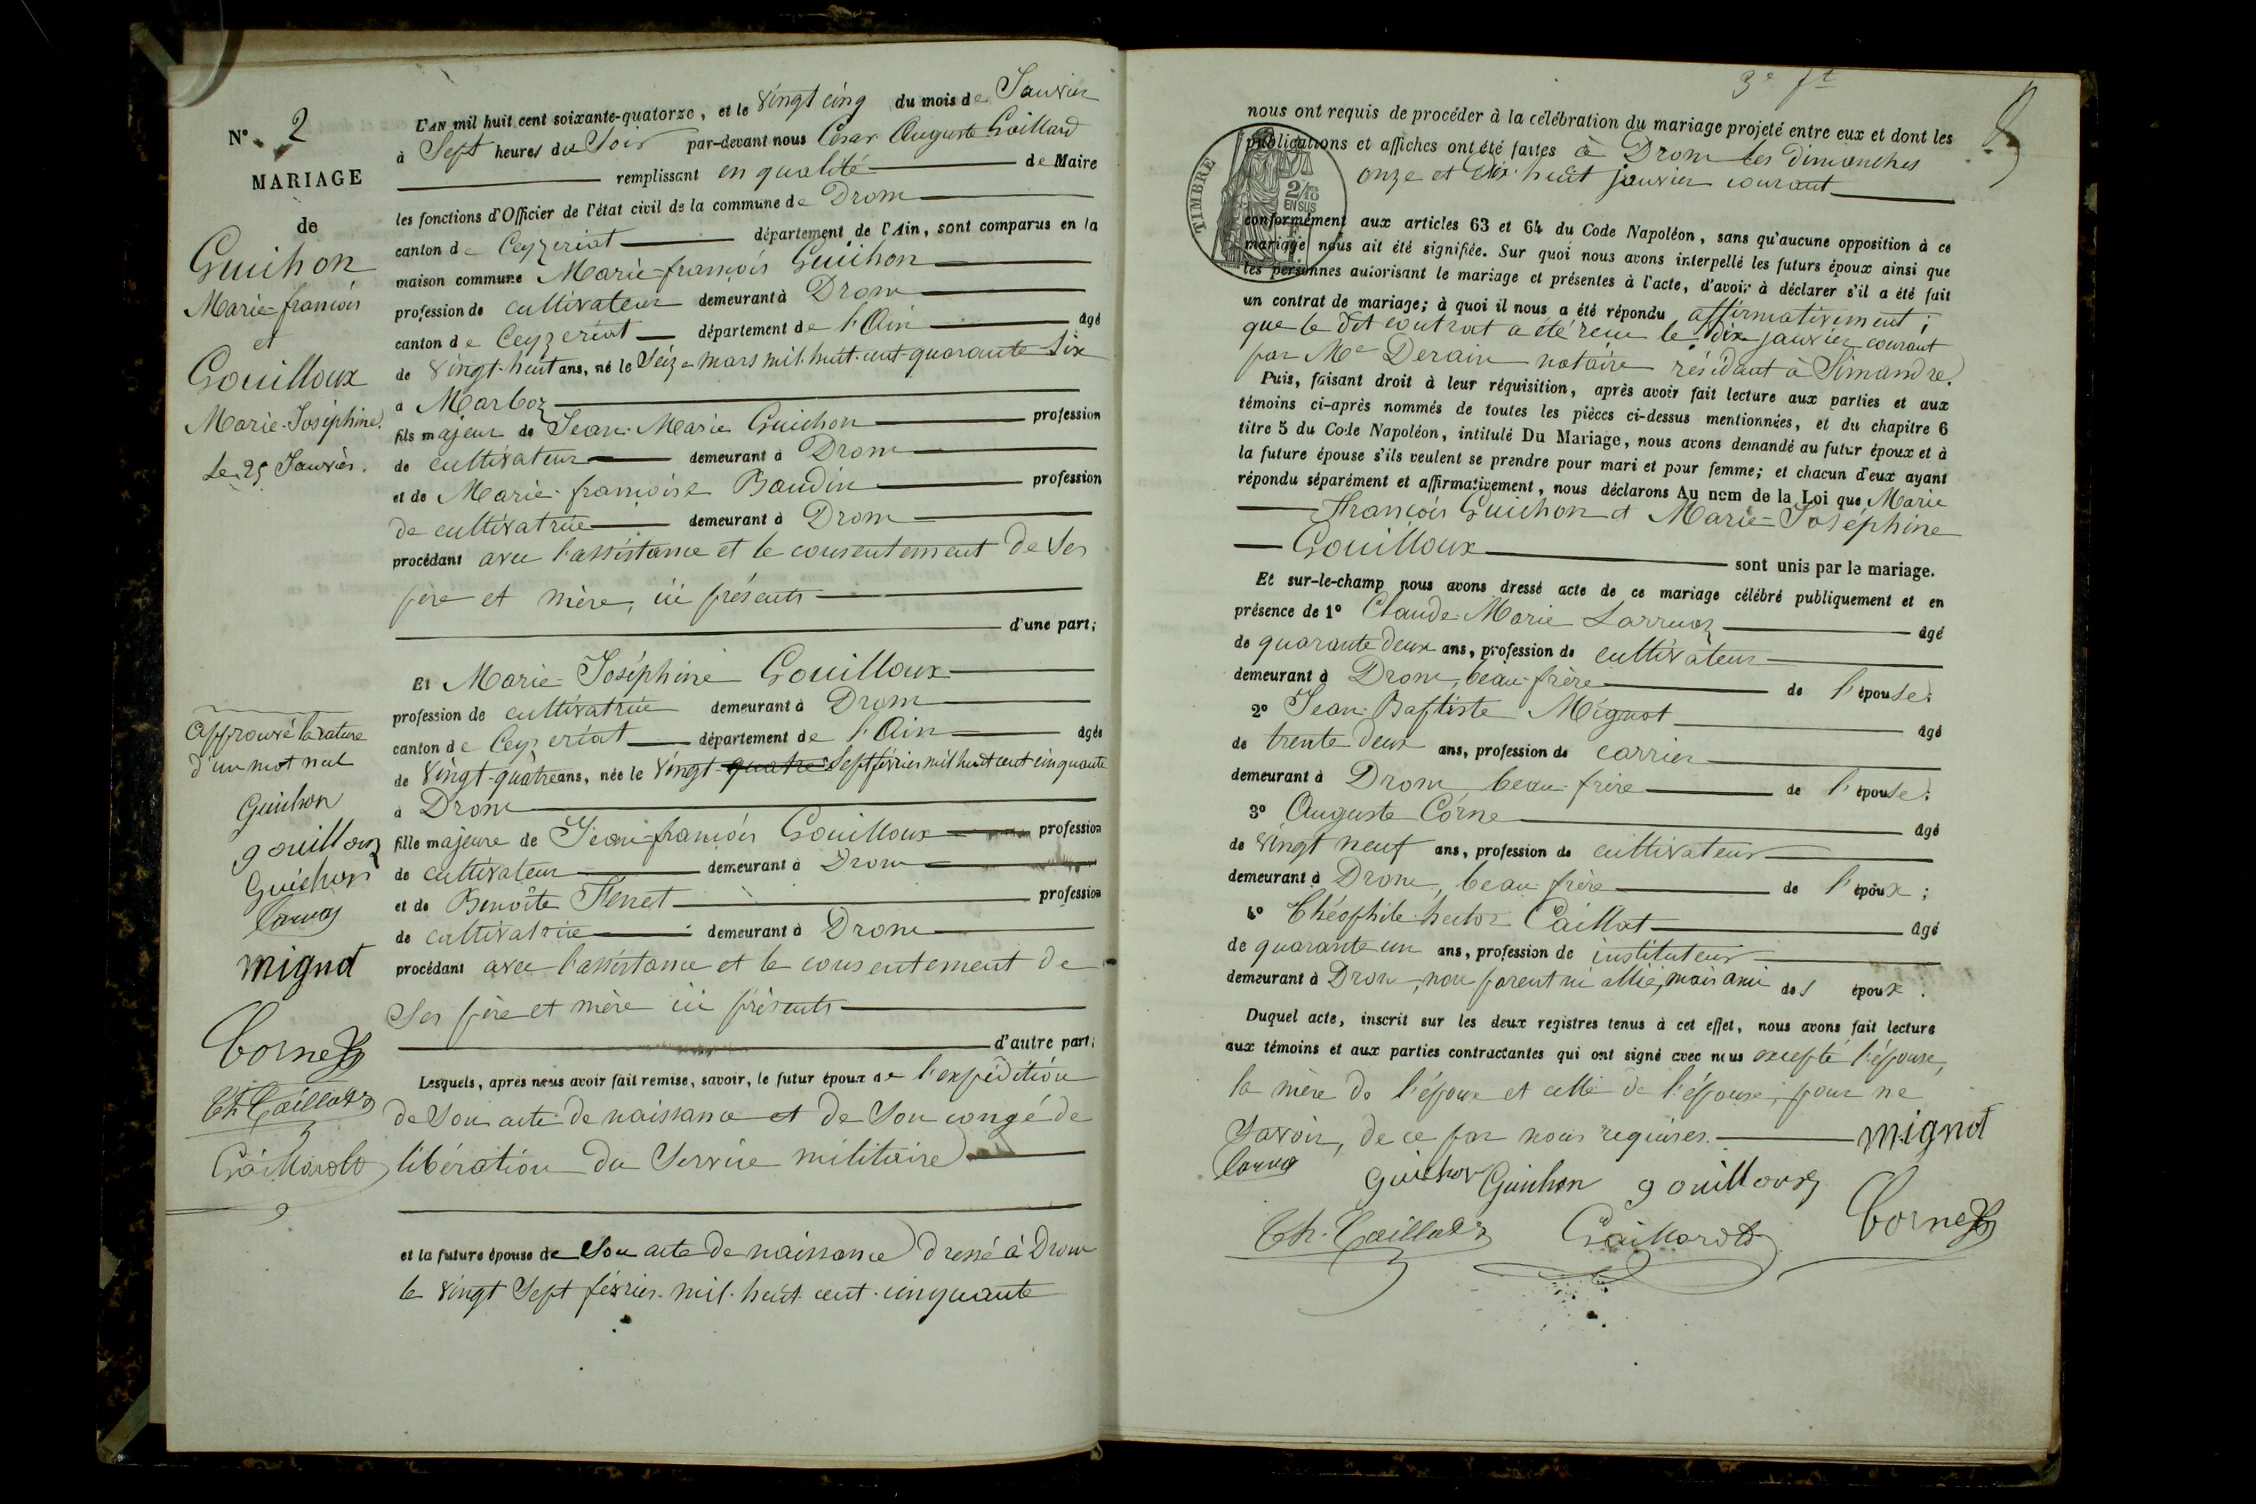 N° 2
MARIAGE
de
Guichon
Marie-françois
et
Gouilloux
Marie-Joséphine.
Le 25 Janvier.
approuvé la rature
d'un mot nul
Guichon
gouilloux
Guichon
mignot
Corne
Th. Caillat
Gaillard
L'AN mil huit cent soixante-quatorze, et le vingt cinq du mois de Janvier
à Sept heures du Soir par-devant nous César Auguste Gaillard
remplissant en qualité de Maire
les fonctions d'Officier de l'état civil de la commune de Drom
canton de Ceyzeriat département de l'Ain, sont comparus en la
maison commune Marie-françois Guichon
profession de cultivateur demeurant à Drom
canton de Ceyzeriat département de l'Ain âgé
de vingt-huit ans, né le Seize mars mil-huit-cent-quarante-six
à Marboz
fils majeur de Jean-Marie Guichon profession
de cultivateur demeurant à Drom
et de Marie-françoise Baudin profession
de cultivatrice demeurant à Drom
procédant avec l'assistance et le consentement de ses
père et mère, ici présents
d'une part;
Et Marie-Joséphine Gouilloux
profession de cultivatrice demeurant à Drom
canton de Ceyzeriat département de l'Ain âgée
de vingt-quatre ans, née le vingt-quatre Sept février mil huit cent cinquante
à Drom
fille majeure de Jean-françois Gouilloux profession
de cultivateur demeurant à Drom
et de Benoîte Ferret profession
de cultivatrice demeurant à Drom
procédant avec l'assistance et le consentement de
Ses père et mère ici présents
d'autre part;
Lesquels, après nous avoir fait remise, savoir, le futur époux de l'expédition
de Son acte de naissance et de Son congé de
libération du Service militaire
et la future épouse de Son acte de naissance dressé à Drom
le vingt Sept février mil-huit-cent-cinquante
3e ft
nous ont requis de procéder à la célébration du mariage projeté entre eux et dont les
publications et affiches ont été faites à Drom les dimanches
onze et dix-huit janvier courant
TIMBRE
2/10
EN SUS
conformément aux articles 63 et 64 du Code Napoléon, sans qu'aucune opposition à ce
mariage nous ait été signifiée. Sur quoi nous avons interpellé les futurs époux ainsi que
les personnes autorisant le mariage et présentes à l'acte, d'avoir à déclarer s'il a été fait
un contrat de mariage; à quoi il nous a été répondu affirmativement;
que le dit contrat a été reçu le dix janvier courant
par Me Derain notaire résidant à Simandre.
Puis, faisant droit à leur réquisition, après avoir fait lecture aux parties et aux
témoins ci-après nommés de toutes les pièces ci-dessus mentionnées, et du chapitre 6
titre 5 du Code Napoléon, intitulé Du Mariage, nous avons demandé au futur époux et à
la future épouse s'ils veulent se prendre pour mari et pour femme; et chacun d'eux ayant
répondu séparément et affirmativement, nous déclarons Au nom de la Loi que Marie
François Guichon et Marie-Joséphine
Gouilloux
sont unis par le mariage.
Et sur-le-champ nous avons dressé acte de ce mariage célébré publiquement et en
présence de 1° Claude-Marie Larruaz âgé
de quarante deux ans, profession de cultivateur
demeurant à Drom, beau-frère de l'épouse:
2° Jean-Baptiste Mignot âgé
de trente deux ans, profession de carrier
demeurant à Drom beau-frère de l'épouse:
3° Auguste Corne âgé
de vingt neuf ans, profession de cultivateur
demeurant à Drom, beau frère de l'époux;
4° Théophile hector Caillat âgé
de quarante un ans, profession de instituteur
demeurant à Drom, non parent ni allié, mais ami des époux.
Duquel acte, inscrit sur les deux registres tenus à cet effet, nous avons fait lecture
aux témoins et aux parties contractantes qui ont signé avec nous excepté l'épouse,
la mère de l'époux et celle de l'épouse, pour ne
savoir, de ce par nous requises.
mignot
Guichon Guichon gouilloux
Th. Caillat Gaillard Corne